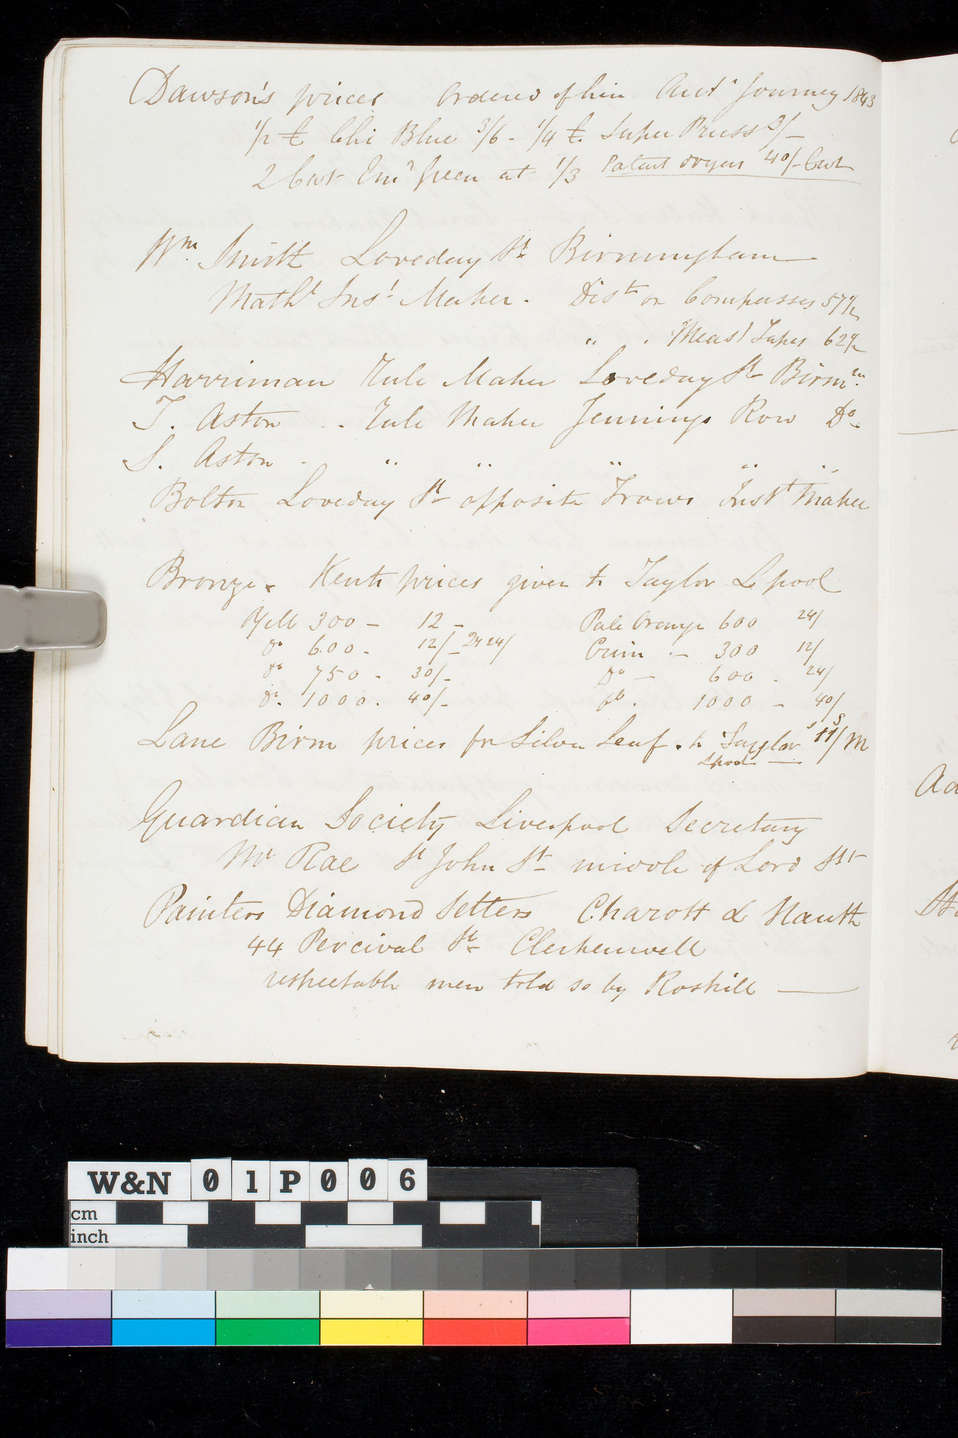 Dawson's prices ordered of him Aut[n] Journey 1843
1/2 ℔ Chi Blue 3/6 - 1/4 ℔. Super Pruss 3/-
2 Cwt Em[d] Green at 1/3 Patent Dryers 40/- Cwt
W[m] Smith Loveday St Birmingham —
Math[l] Ins[t] Maker. Dis[t] on Compasses 57½
" " Meas[g] Tapes 62½
Harriman Rule Maker Loveday St Birm[m].
T. Aston .. Rule Maker Jennings Row D[o] -
S. Aston - " " " " "
Bolton Loveday St opposite Trows Inst[t] Maker
Bronze. Kents prices given to Taylor Lpool
Yell 300 - 12 - Pale Orange 600 24/
D[o] 600 - 12/- 24 24/ Crim - 300 12/
D[o] 750 - 30/- D[o] - 600 - 24/
D[o]. 1000. 40/- D[o]. 1000 - 40/
Lane Birm prices for Silver Leaf. to Taylor 11/ M
Lpool —
Guardian Society Liverpool Secretary
Mr Rae St John St - middle of Lord St
Painters Diamond Setters Charott & Nauth
44 Percival St Clerkenwell
respectable men told so by Roskill —
W&N 01P006
cm
inch